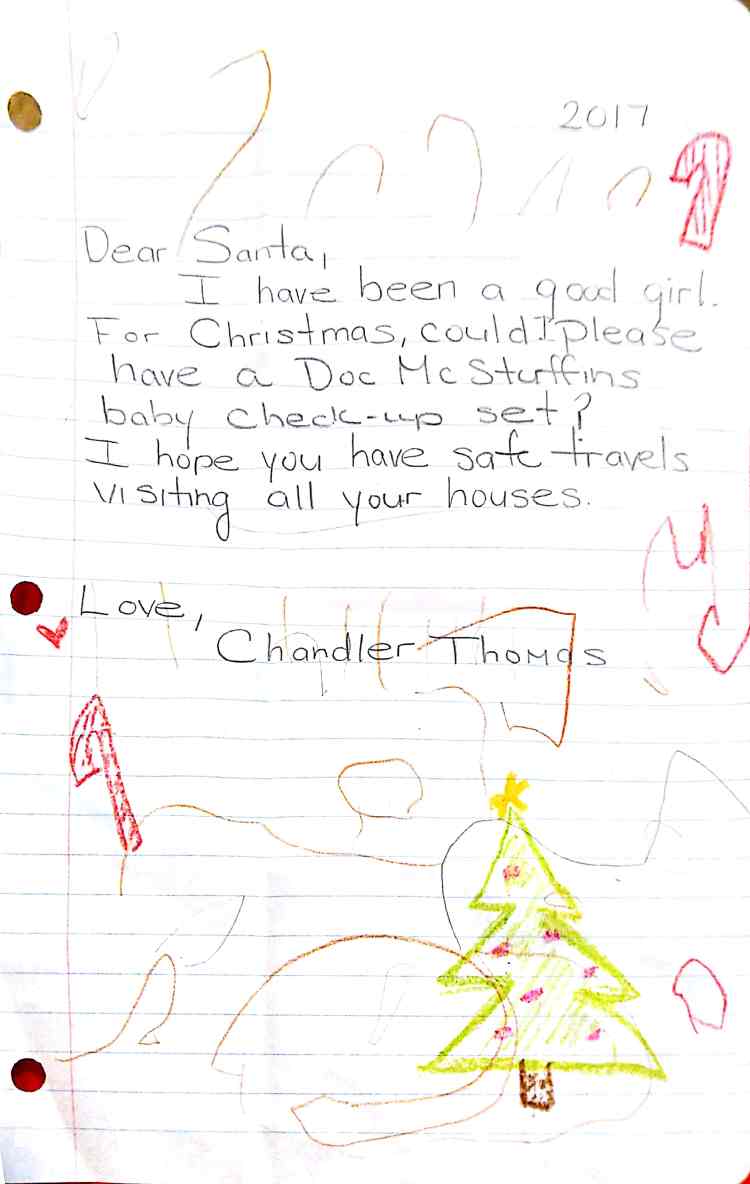 2017
Dear Santa,
I have been a good girl.
For Christmas, could I please
have a Doc McStuffins
baby check-up set?
I hope you have safe travels
visiting all your houses.
Love,
Chandler Thomas